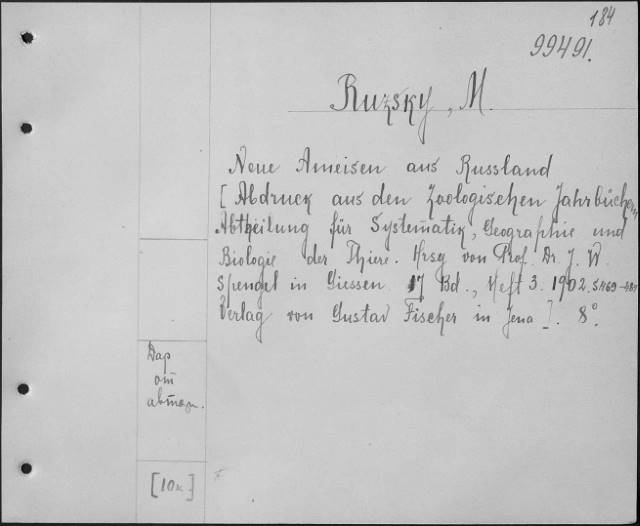 184
99491.
Ruzsky, M.
Neue Ameisen aus Russland
[Abdruck aus den Zoologischen Jahrbüchern,
Abtheilung für Systematik, Geographie und
Biologie der Thiere. Hrsg von Prof. Dr. J. W.
Spengel in Giessen 17 Bd., Heft 3. 1902. S. 469-484
Verlag von Gustav Fischer in Jena]. 8°.
Дар
от
автора.
[10к]